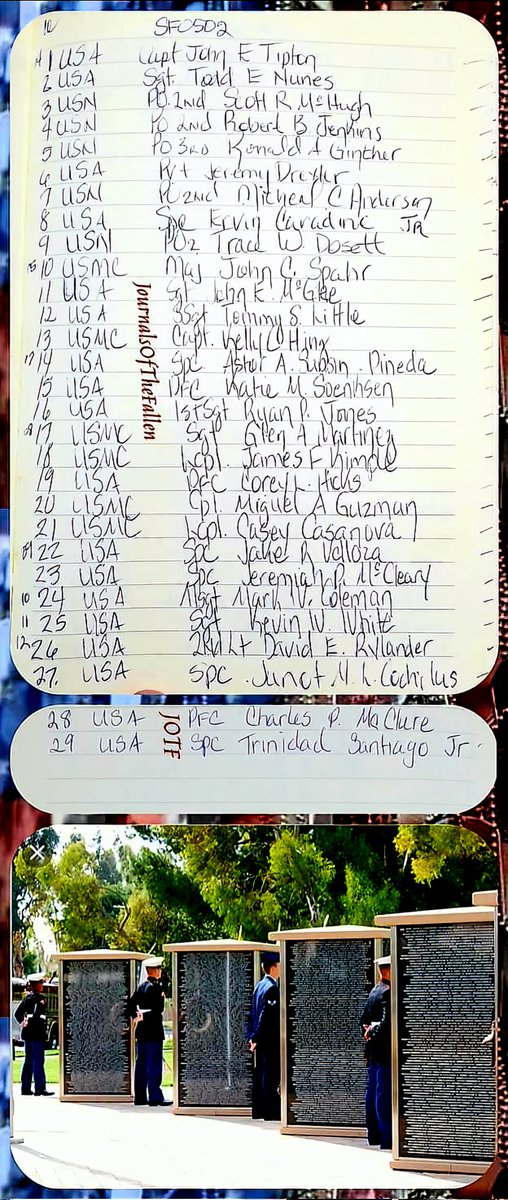 10 SF0502
1 USA Capt John E Tipton
2 USA Sgt Todd E Nunes
3 USN PO.2nd Scott R McHugh
4 USN PO 2nd Robert B Jenkins
5 USN PO 3rd Ronald A Ginther
6 USA Pvt Jeremy Drexler
7 USN PO 2nd Micheal C Anderson
8 USA Spc Ervin Caradine JR
9 USN PO2 Trace W Dosett
10 USMC Maj John C. Spahr
11 USA Sgt John K. McGee
12 USA SSgt Tommy S. Little
13 USMC Capt. Kelly C Hinz
14 USA Spc Astor A. Sunsin-Pineda
15 USA PFC Katie M. Soenksen
16 USA 1stSgt Ryan P. Jones
17 USMC Sgt Glen A Martinez
18 USMC Lcpl. James F Kimple
19 USA PFC Corey L. Hicks
20 USMC Cpl. Miguel A Guzman
21 USMC Lcpl. Casey Casanova
22 USA Spc Jake R Velloza
23 USA Spc Jeremiah P. McCleary
10 24 USA Msgt Mark W. Coleman
11 25 USA Sgt Kevin W. White
12 26 USA 2nd Lt David E. Rylander
27. USA Spc. Junot M. L. Cochilus
JournalsOfTheFallen
28 USA PFC Charles P. McClure
29 USA Spc Trinidad Santiago Jr.
JOTF